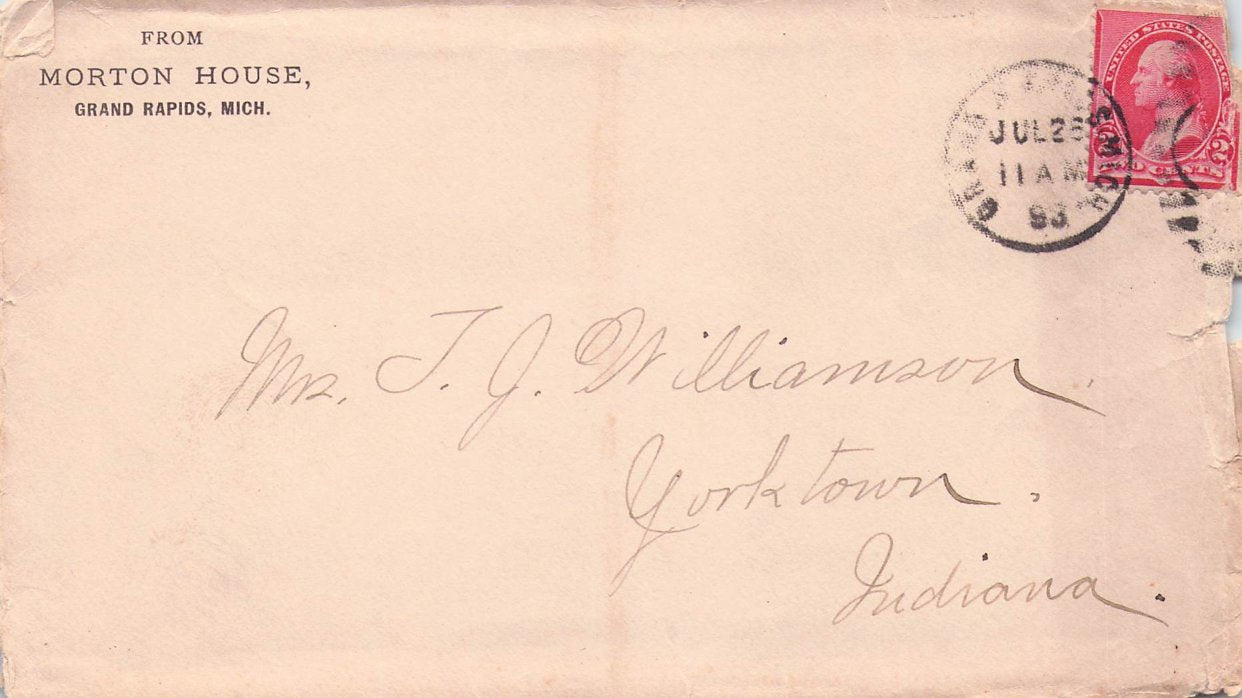 FROM
MORTON HOUSE,
GRAND RAPIDS, MICH.
UNITED STATES POSTAGE
2 2
CENTS.
JUL 25
11 AM
93
MICH.
Mrs. T. J. Williamson.
Yorktown.
Indiana.